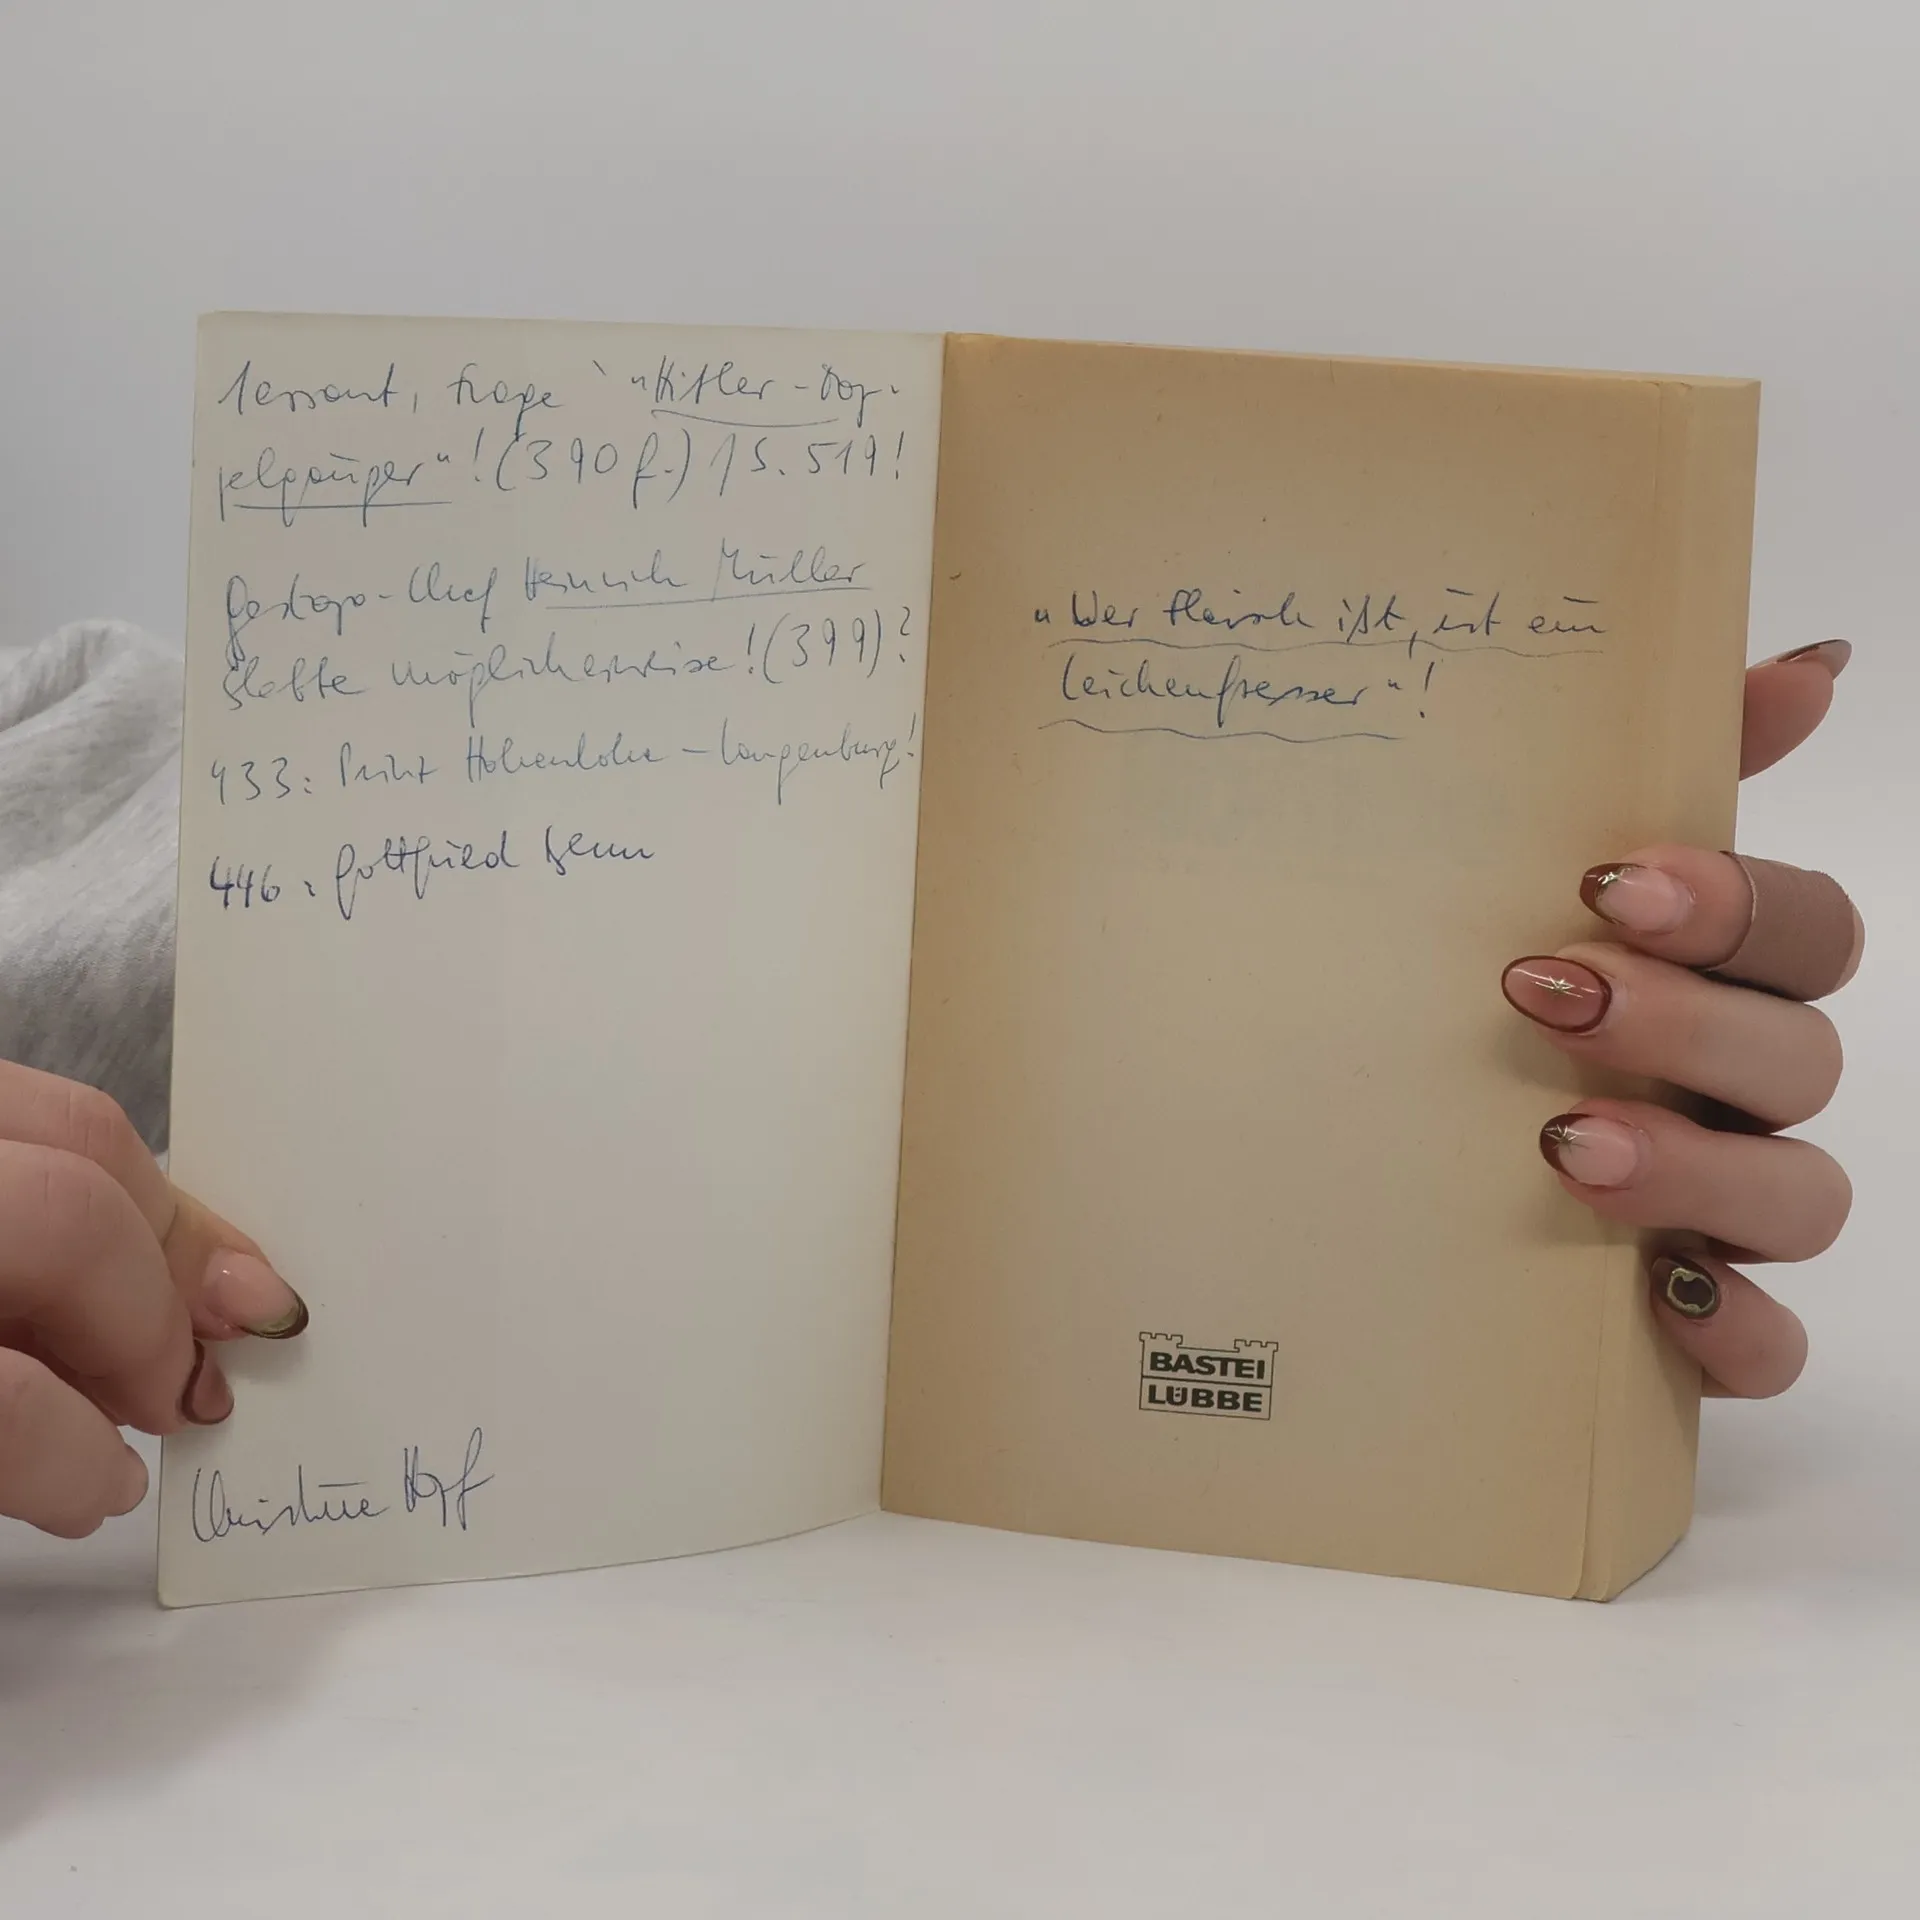 teressant, Frage „Hitler-Dop-
pelgänger“! (390 f.) / S. 519!
Gestapo-Chef Heinrich Müller
lebte möglicherweise! (399)?
433: Prinz Hohenlohe-Langenburg!
446: Gottfried Benn
Christine Hopf
„Wer Fleisch ißt, ist ein
Leichenfresser“!
BASTEI
LÜBBE